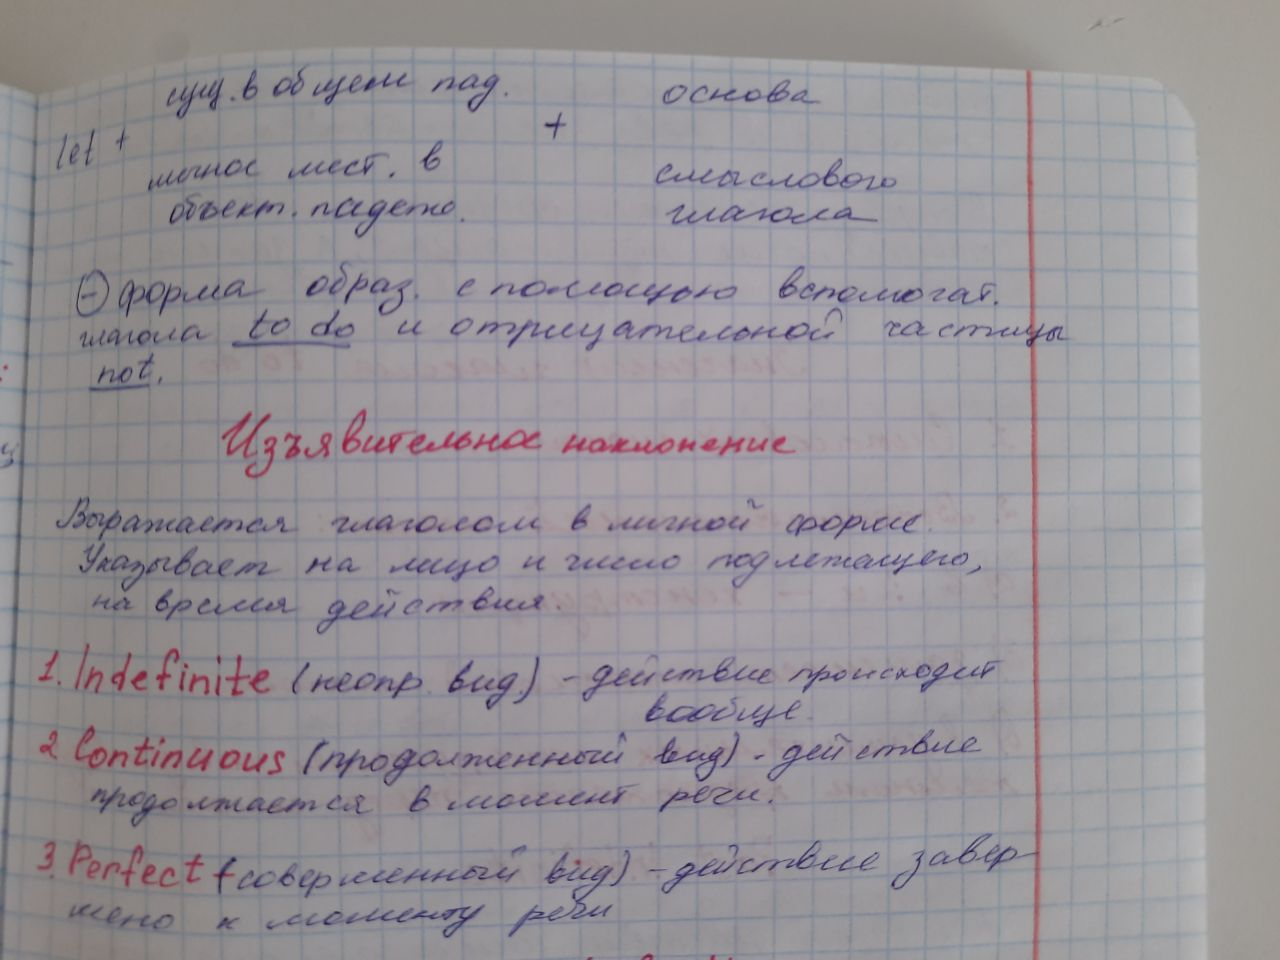 сущ. в общем пад. основа
let + +
личное мест. в смыслового
объект. падеже. глагола
(-) форма образ. с помощью вспомогат.
глагола to do и отрицательной частицы
not.
Изъявительное наклонение
Выражается глаголом в личной форме.
Указывает на лицо и число подлежащего,
на время действия.
1. Indefinite (неопр. вид) - действие происходит
вообще.
2 Continuous (продолженный вид) - действие
продолжается в момент речи.
3. Perfect (совершенный вид) - действие завер-
шено к моменту речи